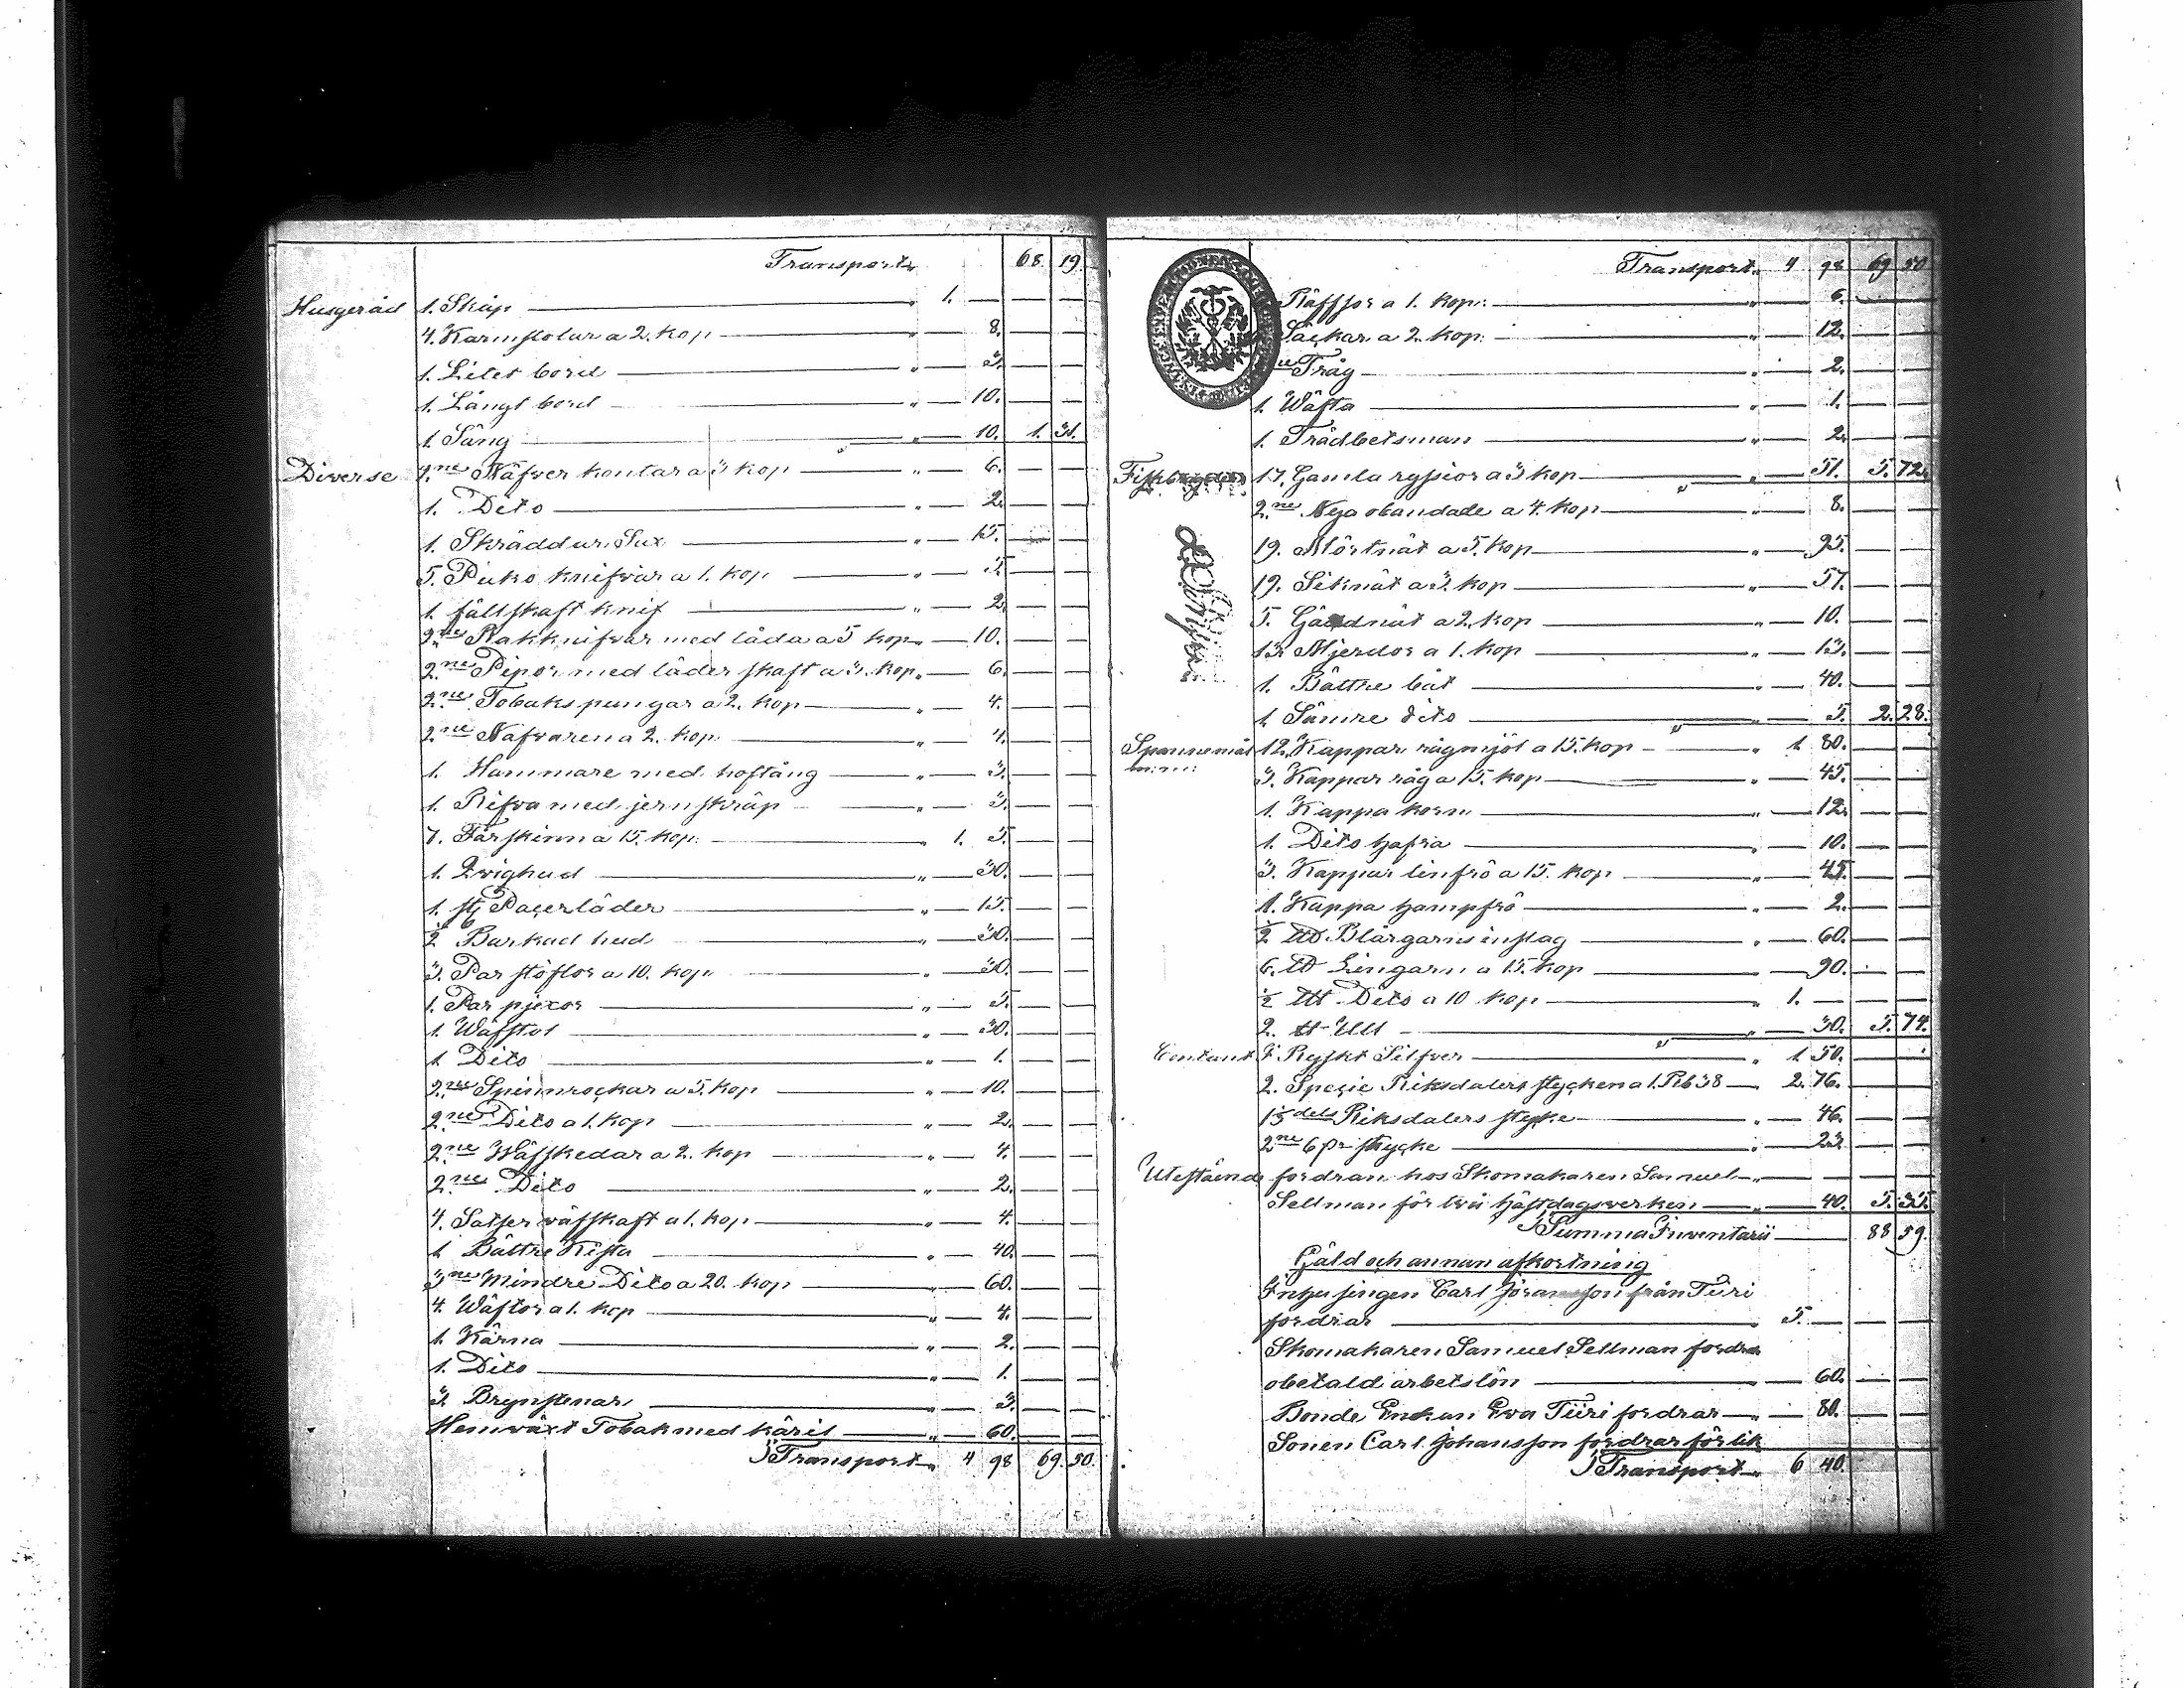 Transport „ 68. 19.
Husgeråd 1. Skåp „ 1. — — —
4. Karmstolar a 2. kop „ — 8. — —
1. Litet bord „ — 3. — —
1. Långt bord „ — 10. — —
1. Säng „ — 10. 1. 31.
Diverse 2.ne Näfver kontar a 3 kop „ — 6. — —
1. Dito „ — 2. — —
1. Skräddar Sax „ — 15. — —
5. Puko knifvar a 1. kop „ — 5. — —
1. fällskaft knif „ — 2. — —
2.ne Rakknifvar med låda a 5 kop „ — 10. — —
2.ne Pipor med läder skaft a 3. kop. „ — 6. — —
2.ne Tobaks pungar a 2. kop „ — 4. — —
2.ne Nafvaren a 2. kop „ — 4. — —
1. Hammare med hoftång „ — 3. — —
1. Rifva med jernskråp „ — 3. — —
7. Fårskinn a 15. kop. „ 1. 5. — —
1. Qvighud „ — 30. — —
1. st Paçerläder „ — 15. — —
½ Barkad hud „ — 30. — —
3. Par stöflor a 10. kop „ — 30. — —
1. Par pjexor „ — 5. — —
1. Wäfstol „ — 30. — —
1. Dito „ — 1. — —
2.ne Spinnrockar a 5. kop „ — 10. — —
2.ne Dito a 1. kop „ — 2. — —
2.ne Wäfskedar a 2. kop „ — 4. — —
2.ne Dito „ — 2. — —
4. Satser väfskaft a 1. kop „ — 4. — —
1. Bättre Kista „ — 40. — —
3.ne Mindre Dito a 20. kop „ — 60. — —
4. Wäftor a 1. kop „ — 4. — —
1. Kärna „ — 2. — —
1. Dito „ — 1. — —
3. Brynstenar „ — 3. — —
Hemväxt Tobak med käril „ — 60. — —
Transport „ 4 98 69. 50.
Transport „ 4 98 69 50
Räffsor a 1. kop. „ — 6. — —
Säckar a 2. kop. „ — 12. — —
ne Tråg „ — 2. — —
1. Wäfta „ — 1. — —
1. Trädbetsman „ — 2. — —
17. Gamla ryssior a 3 kop „ — 51. 5. 72.
2.ne Nya obandade a 4. kop „ — 8. — —
19. Mörtnät a 5. kop „ — 95. — —
19. Siknät a 3. kop „ — 57. — —
5. Gäddnät a 2. kop „ — 10. — —
13. Mjerdor a 1. kop „ — 13. — —
1. Bättre båt „ — 40. — —
1. Sämre dito „ — 5. 2. 28.
Spannemål 12. Kappar rågmjöl a 15. kop „ 1. 80. — —
3. Kappar råg a 15. kop „ — 45. — —
1. Kappa korn „ — 12. — —
1. Dito hafra „ — 10. — —
3. Kappar linfrö a 15. kop „ — 45. — —
1. Kappa hampfrö „ — 2. — —
½ Blårgarns inslag „ — 60. — —
6. Lingarn a 15. kop „ — 90. — —
½ Dito a 10 kop „ 1. — — —
2. Ull „ — 30. 5. 74.
Contant Ryskt Silfver „ 1 50. — —
2. Specie Riksdalers stycken a 1. Rb 38 — 2. 76. — —
1/3 dels Riksdalers stycke „ — 46. — —
2ne 6 stycke „ — 23. — —
Utestående fordran hos Skomakaren Samuel „ — — —
Sellman för två hästdagsverken „ — 40. 5. 35.
Summa Inventarii 88 59.
Gäld och annan afkortning
Carl Göransson från Türi
fordrar „ 5. — — —
Skomakaren Samuel Sellman fordra
obetald arbetslön „ — 60. — —
Bonde Enkan Eva Türi fordrar „ — 80. — —
Sonen Carl Johansson fordrar för lik
Transport „ 6 40.